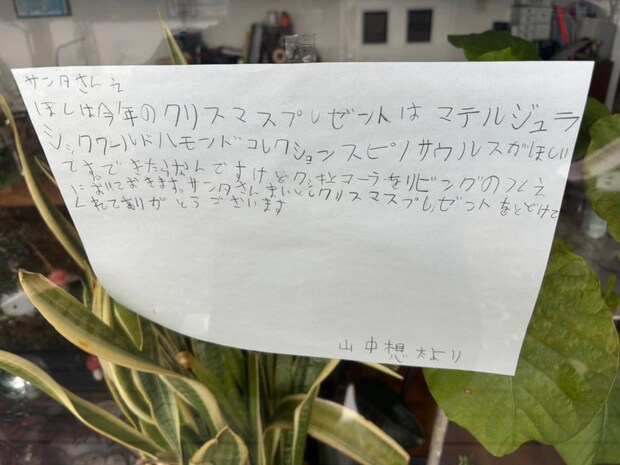 サンタさんえ
ほしは今年のクリスマスプレゼントは マテルジュラ
シックワールドハモンドコレクションスピノサウルスがほしい
ですできたらなんですけどクッキとコーラをリビングのつくえ
においておきます。サンタさんまいとしクリスマスプレゼントをとどけて
くれてありがとうございます
山中想太より